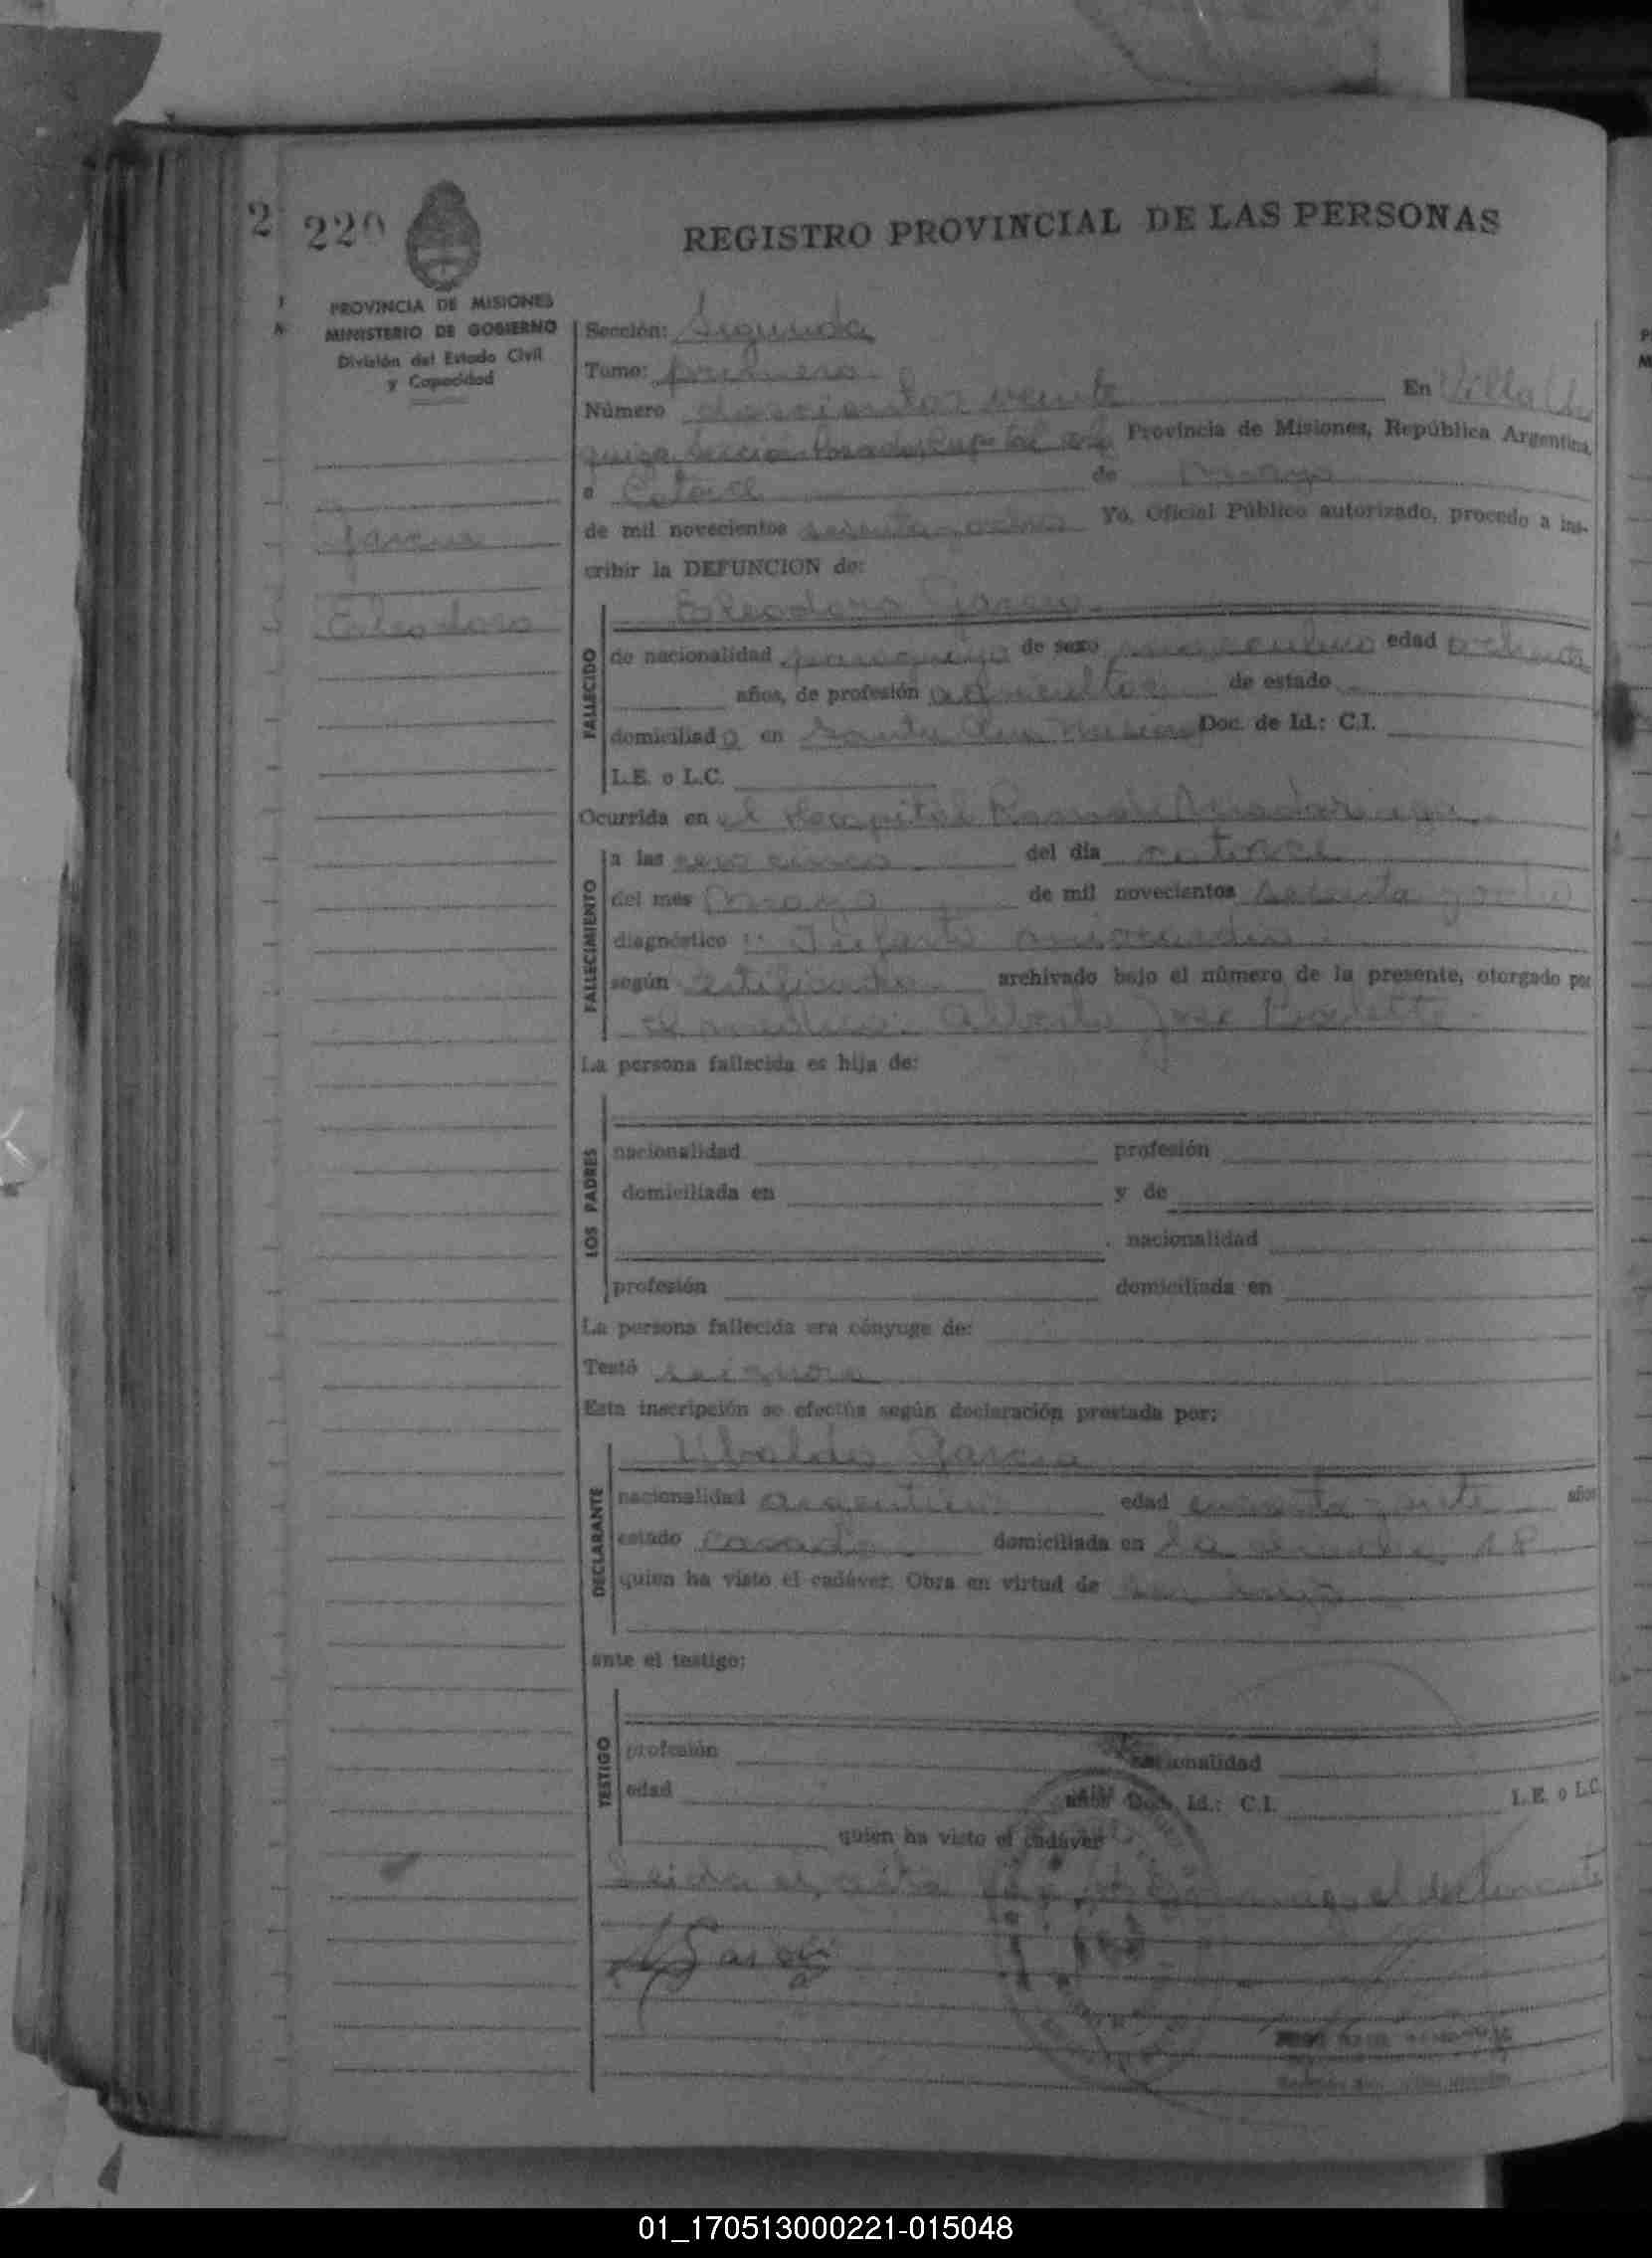 2 220
REGISTRO PROVINCIAL DE LAS PERSONAS
PROVINCIA DE MISIONES
MINISTERIO DE GOBIERNO
División del Estado Civil
y Capacidad
Sección: Segunda
Tomo: primero
Número doscientos veinte En Villa
Provincia de Misiones, República Argentina,
a catorce de Mayo
de mil novecientos sesenta y ocho Yo, Oficial Público autorizado, procedo a ins-
cribir la DEFUNCION de:
Garcia
Eleodoro
FALLECIDO
Eleodoro Garcia
de nacionalidad paraguayo de sexo masculino edad ochenta
años, de profesión agricultor de estado
domiciliado en Santa Ana Misiones Doc. de Id.: C.I.
L.E. o L.C.
Ocurrida en el Hospital Ramon Madariaga
FALLECIMIENTO
a las cero cinco del día catorce
del mes Mayo de mil novecientos sesenta y ocho
diagnóstico Infarto miocardio
según certificado archivado bajo el número de la presente, otorgado por
el medico: Alberto Jose
La persona fallecida es hija de:
LOS PADRES
nacionalidad profesión
domiciliada en y de
nacionalidad
profesión domiciliada en
La persona fallecida era cónyuge de:
Testó se ignora
Esta inscripción se efectúa según declaración prestada por:
DECLARANTE
Ubaldo Garcia
nacionalidad argentino edad y siete años
estado casado domiciliada en 18
quien ha visto el cadáver. Obra en virtud de
ante el testigo:
TESTIGO
profesión nacionalidad
edad años Doc. Id.: C.I. L.E. o L.C.
quien ha visto el cadáver
Leida el acta el declarante
Garcia
01_170513000221-015048